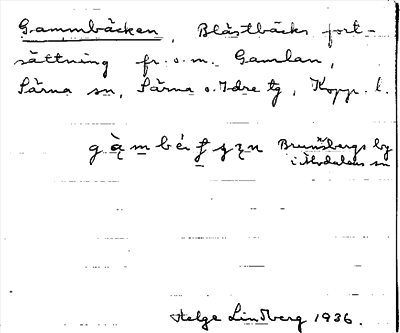 Gammbäcken, Blästbäcks fort-
sättning fr. o. m. Gamlan,
Särna sn, Särna o. Idre tg, Kopp. l.
Brunsbergs by
i Älvdalens sn
Helge Lindberg 1936.